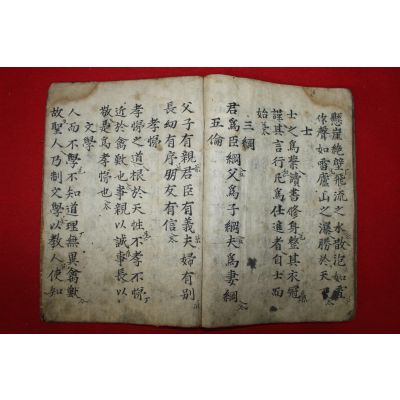 懸崖絶壁飛流之水散泡如雪
作聲如雪廬山之瀑勝於天
士
士之爲業讀書修身整其衣冠
謹其言行凡爲仕進者自士而
始
三綱
君爲臣綱父爲子綱夫爲妻綱
五倫
父子有親君臣有義夫婦有別
長幼有序朋友有信
孝悌
孝悌之道根於天性不孝不悌
近於禽獸也事親以誠事長以
敬是爲孝悌也
文學
人而不學不知道理無異禽獸
故聖人乃制文學以教人使知